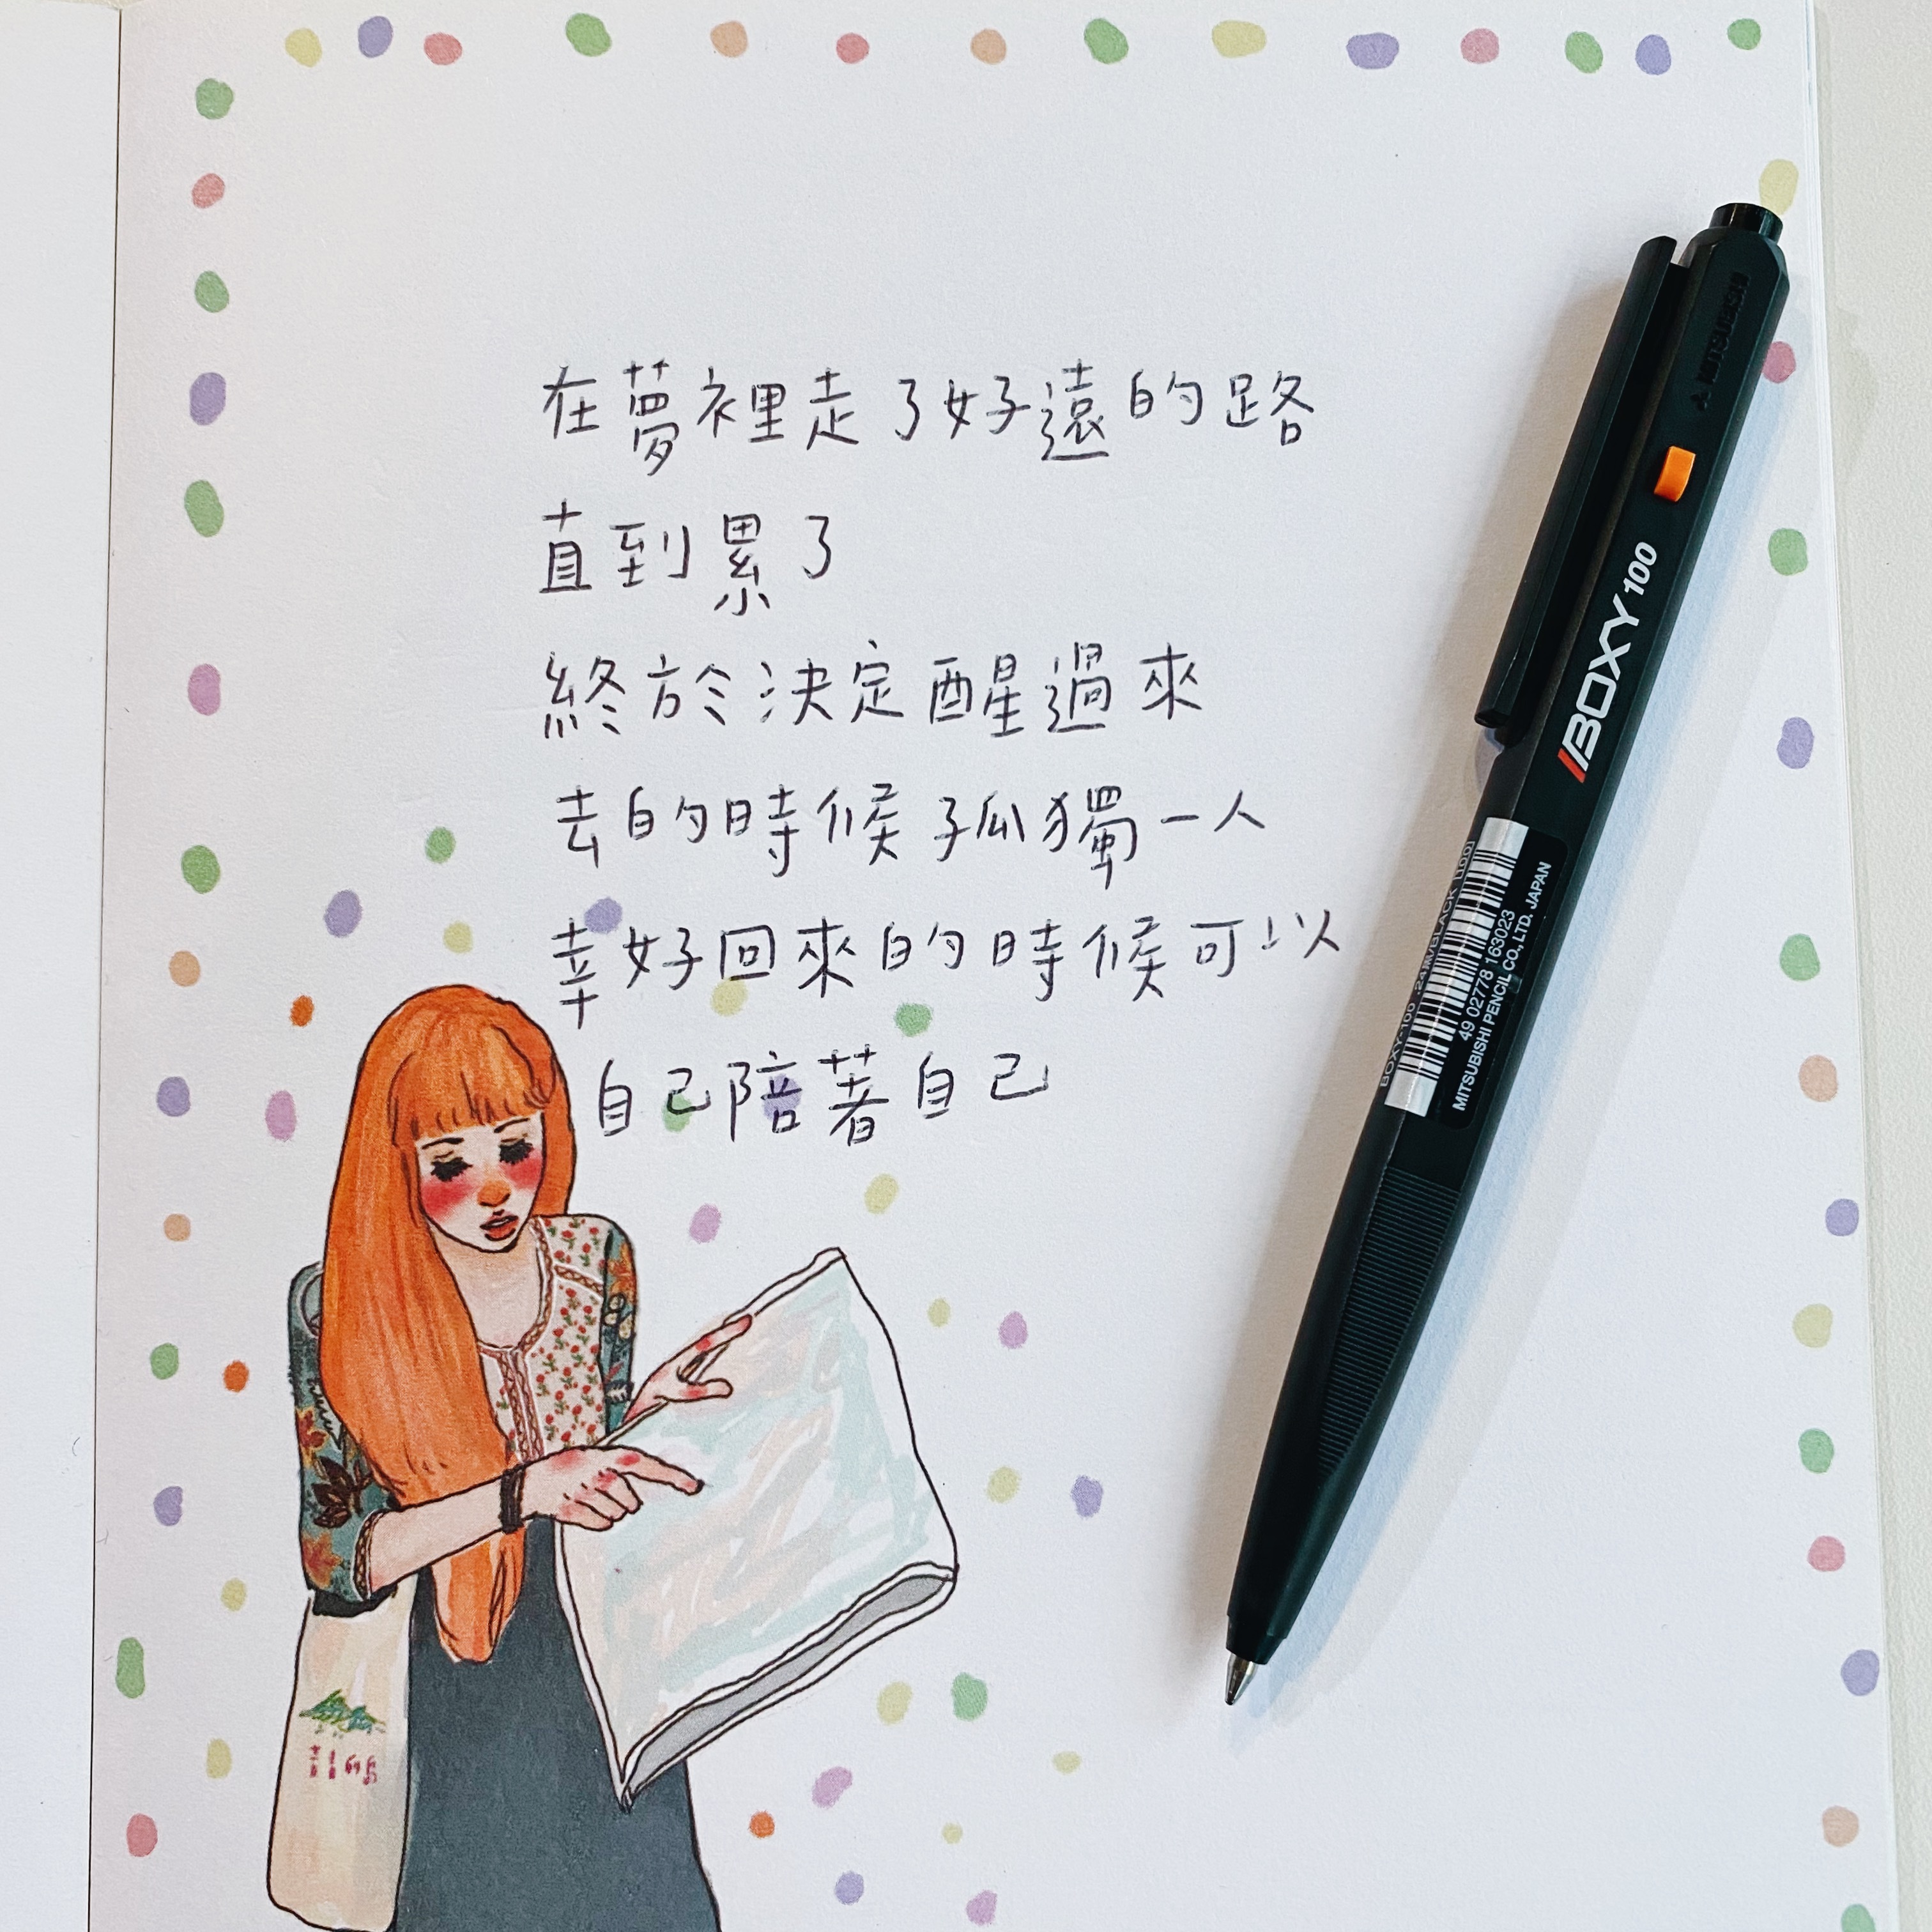 在夢裡走了好遠的路
直到累了
終於決定醒過來
去的時候孤獨一人
幸好回來的時候可以
自己陪著自己
MITSUBISHI
BOXY 100
49 02778 163023
MITSUBISHI PENCIL CO., LTD. JAPAN